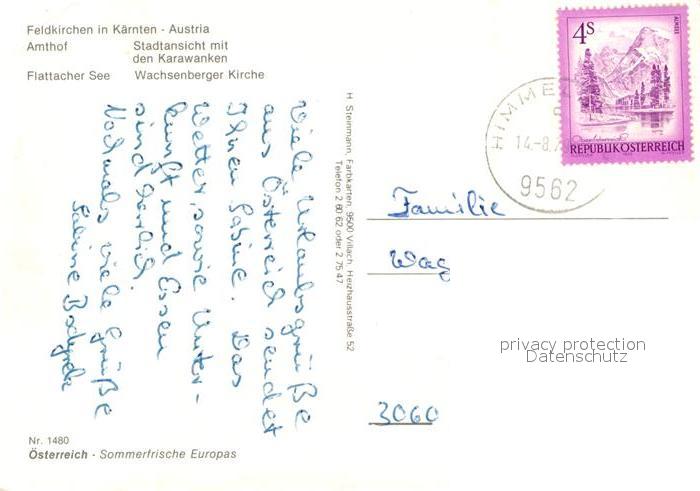 Feldkirchen in Kärnten - Austria
Amthof Stadtansicht mit
den Karawanken
Flattacher See Wachsenberger Kirche
Viele Urlaubsgrüße
aus Österreich sendet
Ihnen Sabine. Das
Wetter, sowie Unter-
kunft und Essen
sind herrlich.
Nochmals viele Grüße
Sabine
H. Steinmann, Farbkarten, 9500 Villach, Heizhausstraße 52
Telefon 2 60 62 oder 2 75 47
4S
ALMSEE
REPUBLIK ÖSTERREICH
HIMME
14.-8.7
9562
Familie
Wag
privacy protection
Datenschutz
3060
Nr. 1480
Österreich - Sommerfrische Europas